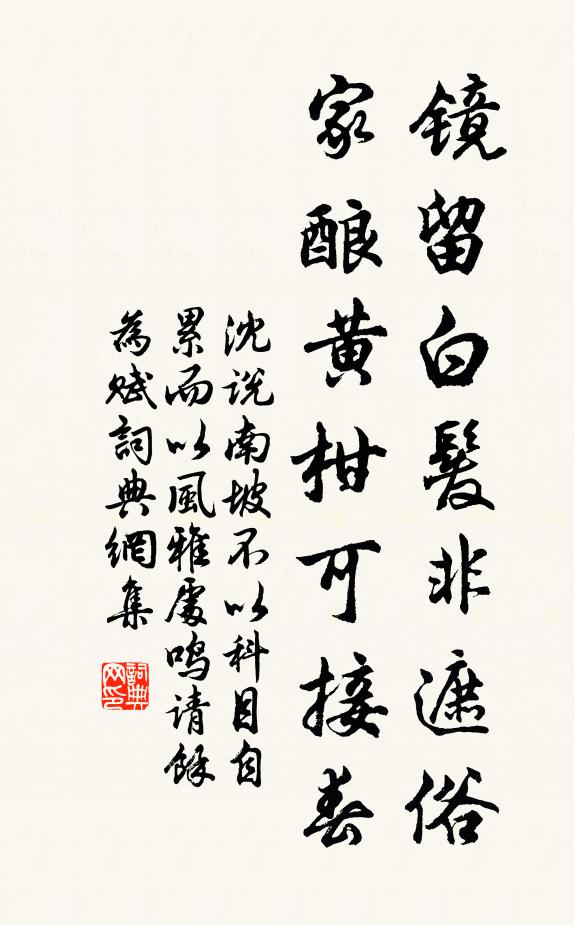 镜留白髮非遮俗
家酿黄柑可接春
沈说南坡不以科目自
累而以風雅處鸣请餘
為赋詞典網集
詞典网印